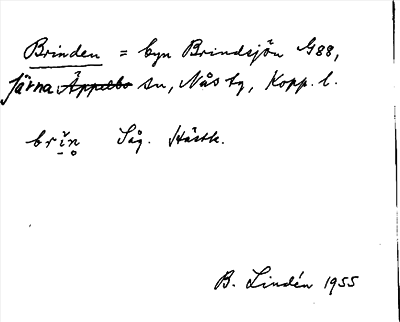 Brinden = byn Brindsjön G88,
Järna Äppelbo sn, Nås tg, Kopp. l.
brĩn Såg. Hästb.
B. Lindén 1955